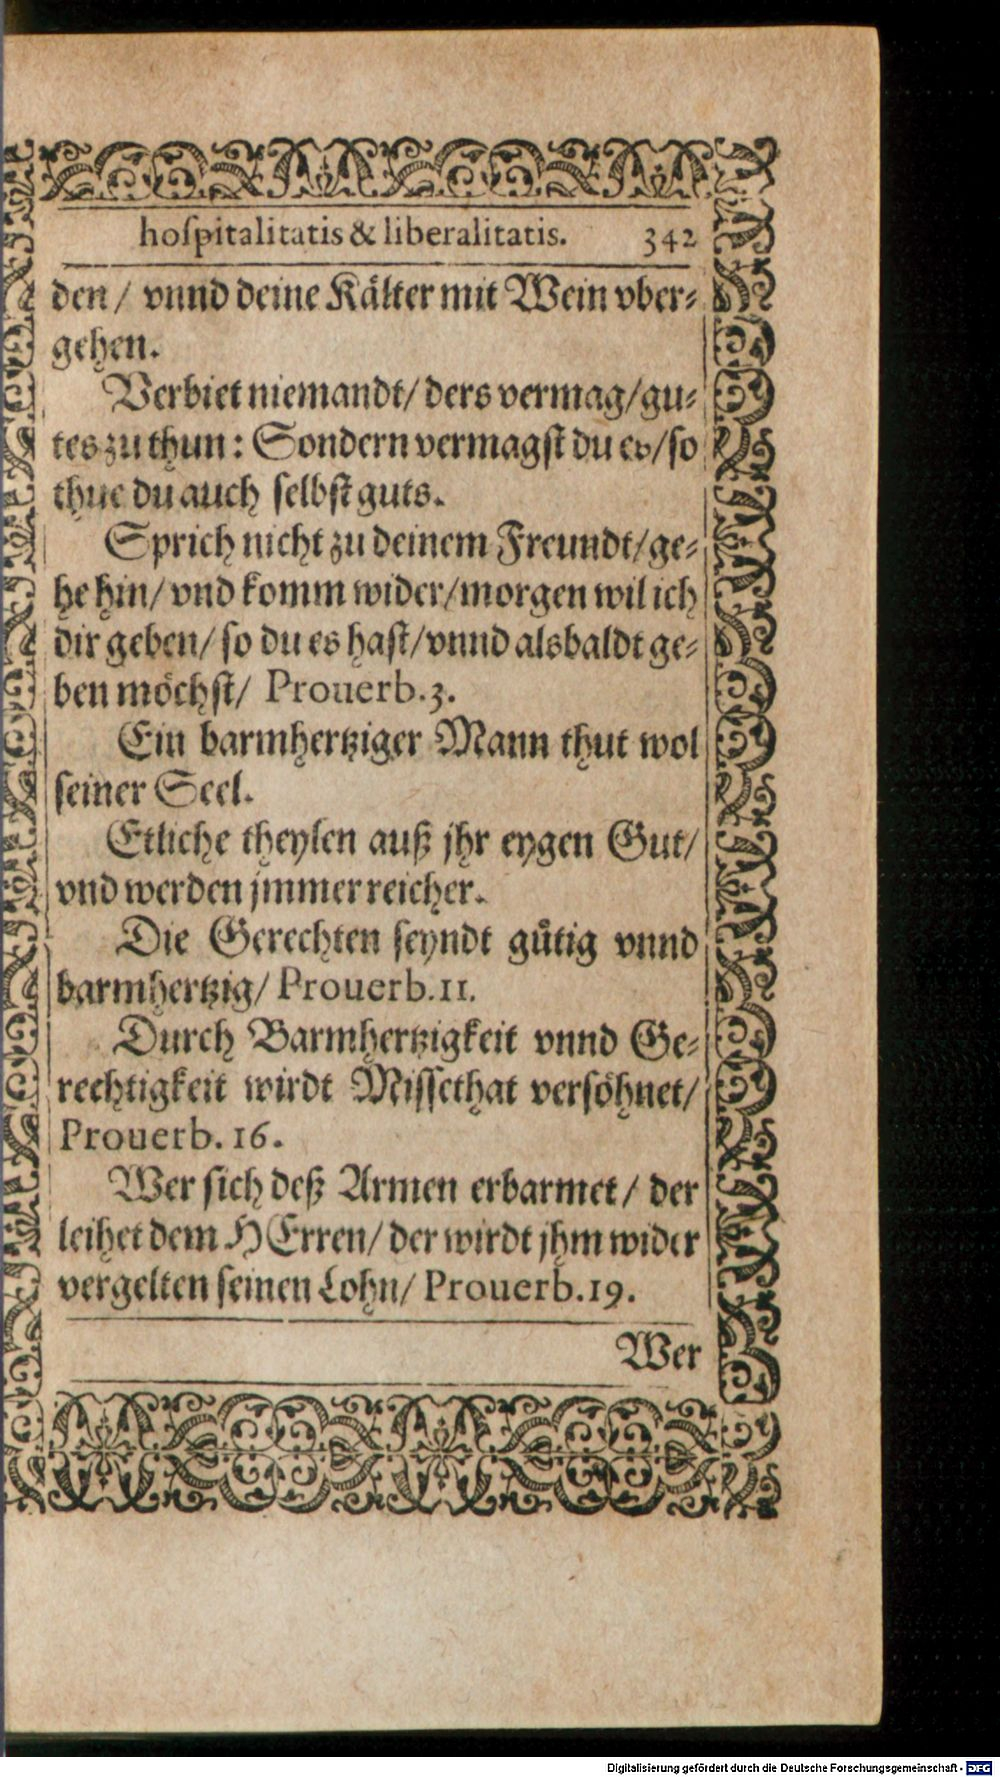 hoſpitalitatis & liberalitatis. 342
den / vnnd deine Kälter mit Wein vber⸗
gehen.
Verbiet niemandt / ders vermag / gu⸗
tes zu thun: Sondern vermagſt du es / ſo
thue du auch ſelbſt guts.
Sprich nicht zu deinem Freundt / ge⸗
he hin / vnd komm wider / morgen wil ich
dir geben / ſo du es haſt / vnnd alsbaldt ge⸗
ben möchſt / Prouerb. 3.
Ein barmhertziger Mann thut wol
ſeiner Seel.
Etliche theylen auß jhr eygen Gut /
vnd werden jmmer reicher.
Die Gerechten ſeyndt gütig vnnd
barmhertzig / Prouerb. 11.
Durch Barmhertzigkeit vnnd Ge⸗
rechtigkeit wirdt Miſſethat verſöhnet /
Prouerb. 16.
Wer ſich deß Armen erbarmet / der
leihet dem HErren / der wirdt jhm wider
vergelten ſeinen Lohn / Prouerb. 19.
Wer
Digitalisierung gefördert durch die Deutsche Forschungsgemeinschaft - DFG